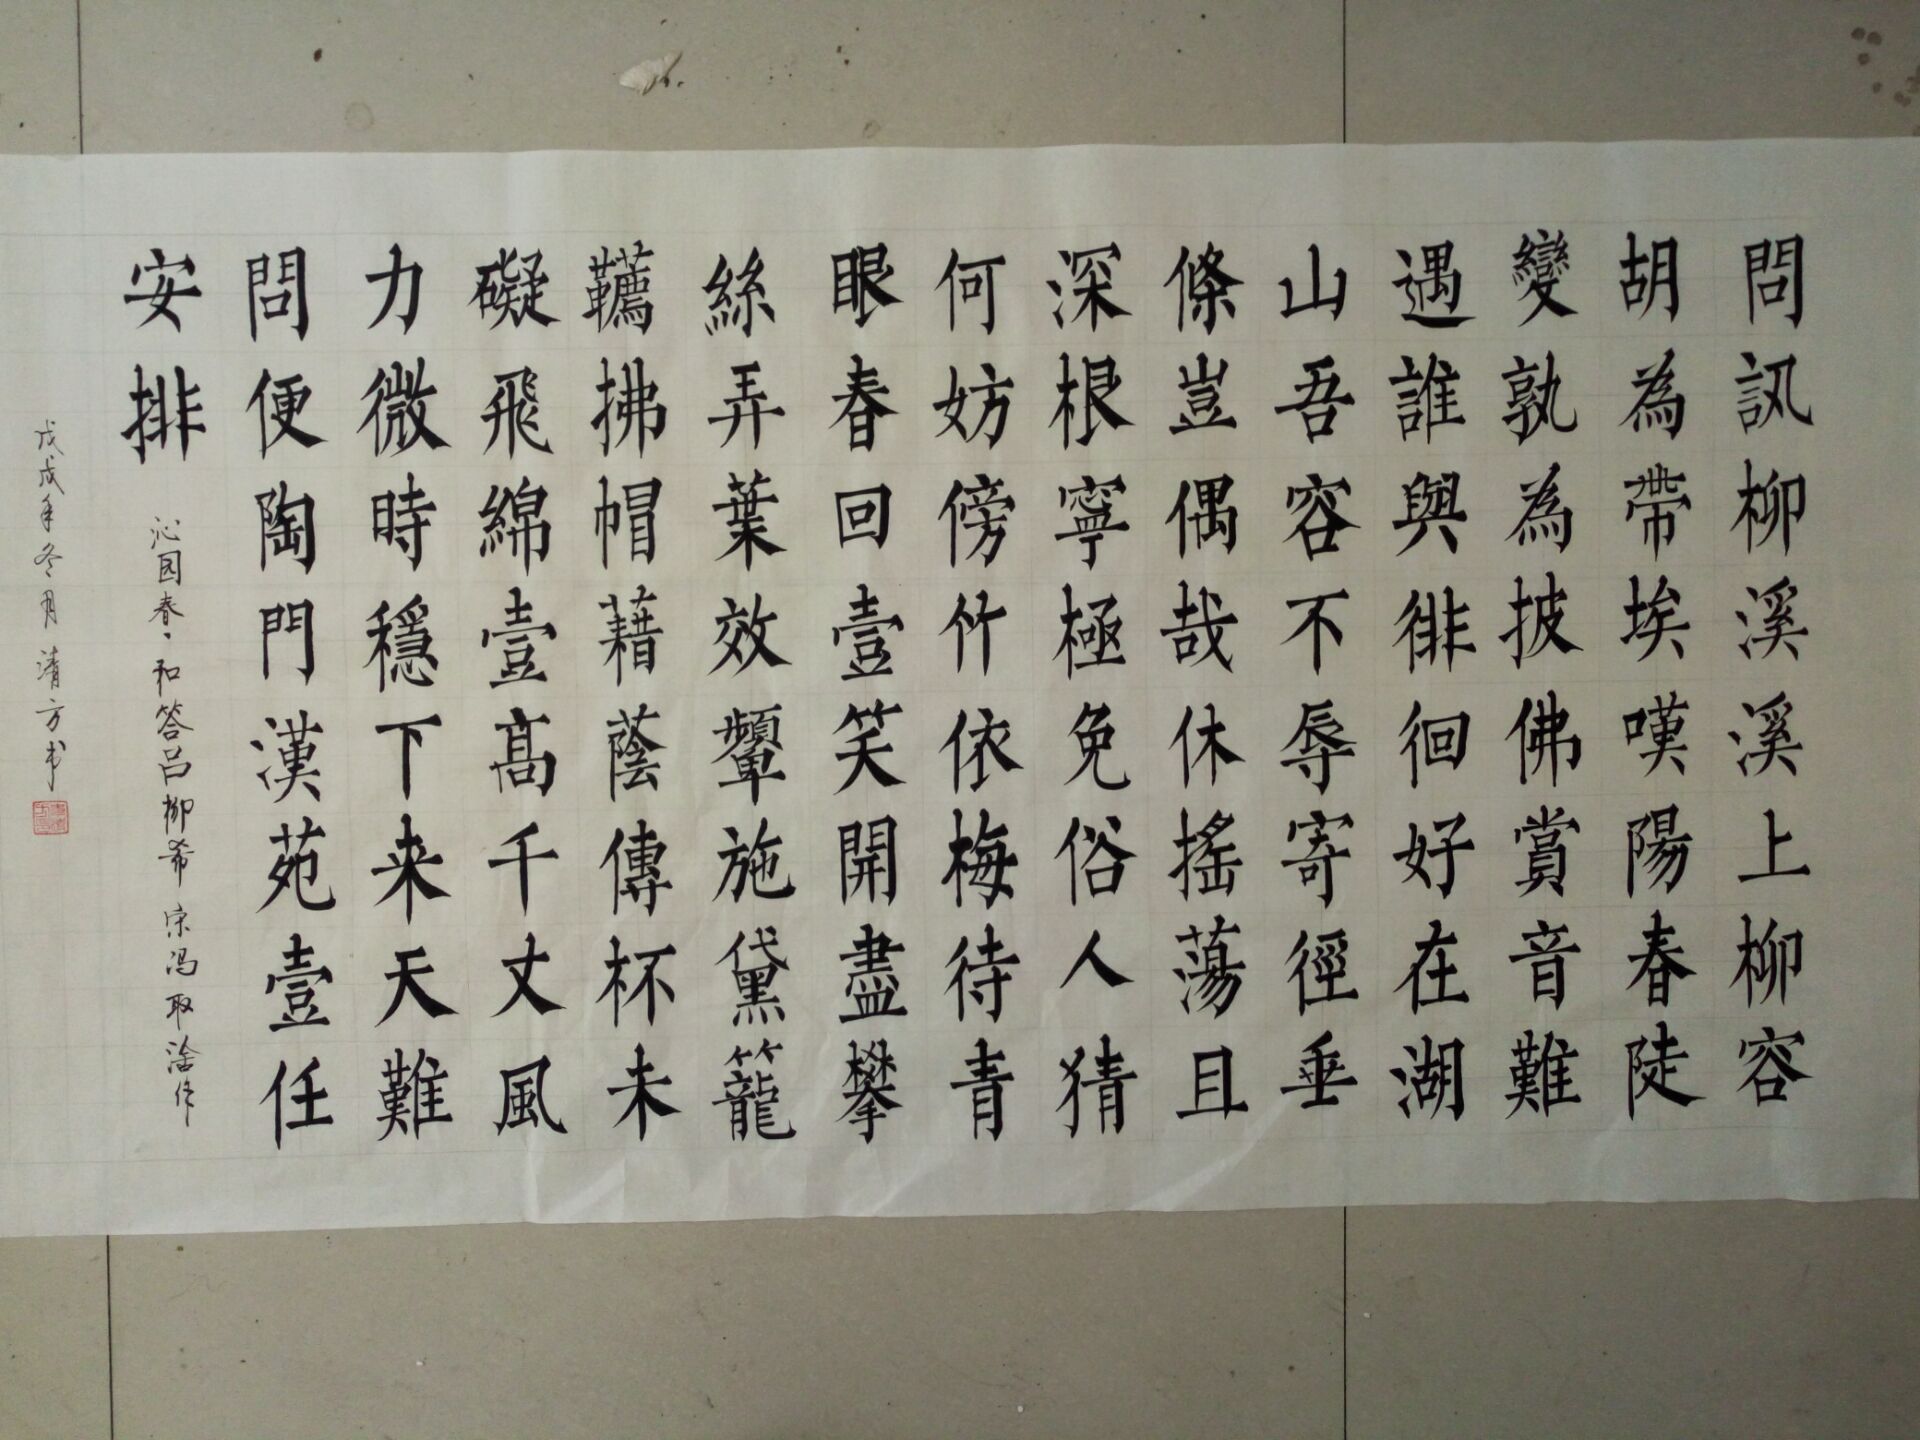 問訊柳溪溪上柳容
胡為帶埃嘆陽春陡
變孰為披佛賞音難
遇誰與徘徊好在湖
山吾容不辱寄徑垂
條豈偶哉休搖蕩且
深根寧極免俗人猜
何妨傍竹依梅待青
眼春回壹笑開盡攀
絲弄葉效顰施黛籠
韉拂帽藉蔭傳杯未
礙飛綿壹高千丈風
力微時穩下来天難
問便陶門漢苑壹任
安排
沁园春·和答吕柳希 宋冯取洽作
戊戌年冬月清方书